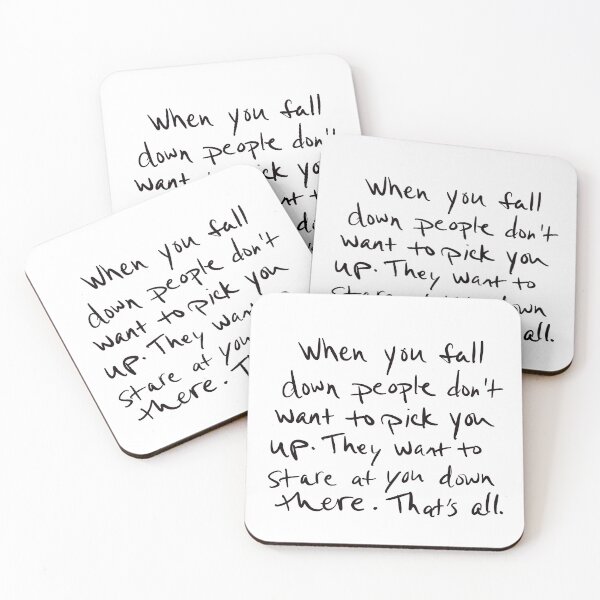 When you fall
down people don't
want
When you fall
down people don't
want to pick you
up. They want to
stare down
all.
When you fall
down people don't
want to pick you
up. They want
stare at you
there.
When you fall
down people don't
want to pick you
up. They want to
stare at you down
there. That's all.